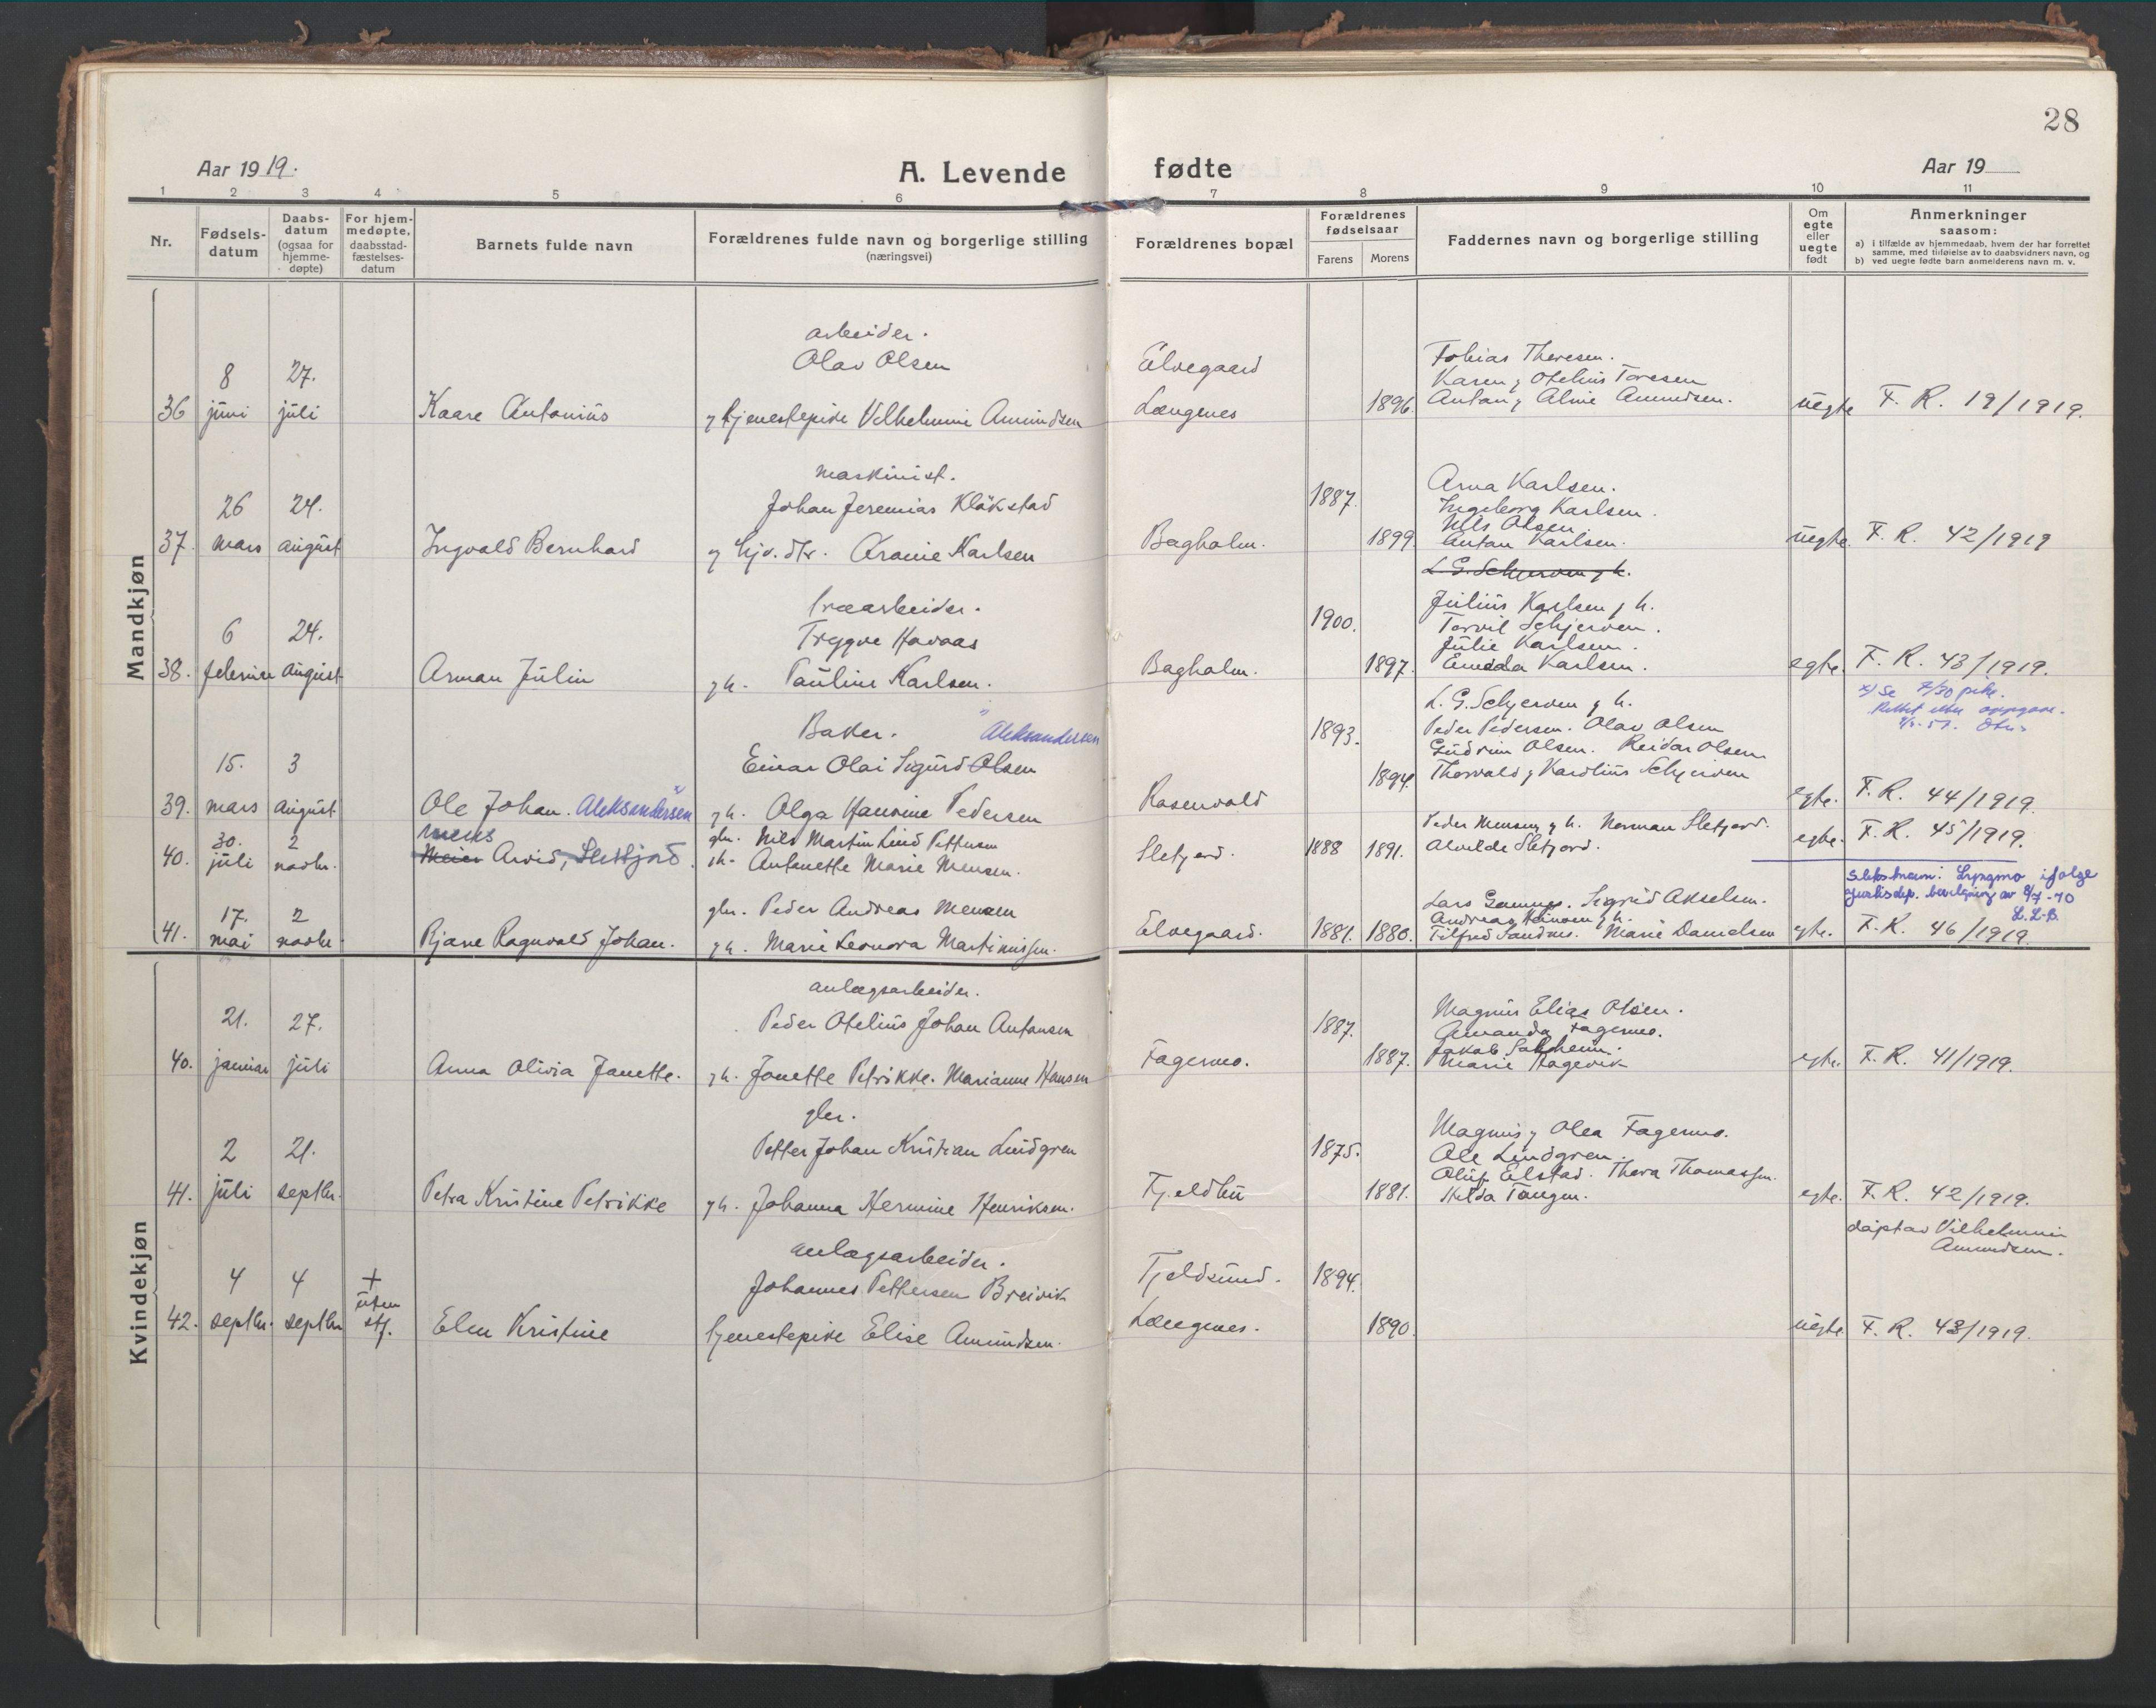 28
Aar 1919.
A. Levende fødte
Aar 19
1 2 3 4 5 6 7 8 9 10 11
Nr.
Fødsels-
datum
Daabs-
datum
(ogsaa for
hjemme-
døpte)
For hjem-
medøpte,
daabsstad-
fæstelses-
datum
Barnets fulde navn
Forældrenes fulde navn og borgerlige stilling
(næringsvei)
Forældrenes bopæl
Forældrenes
fødselsaar
Farens Morens
Faddernes navn og borgerlige stilling
Om
egte
eller
uegte
født
Anmerkninger
saasom:
a) i tilfælde av hjemmedaab, hvem der har forrettet
samme, med tilføielse av to daabsvidners navn, og
b) ved uegte fødte barn anmelderens navn m. v.
Mandkjøn
arbeider.
8 27. Olav Olsen Elvegaard Tobias Theresen.
Karen og Otelius Toresen
36 juni juli Kaare Antonius og tjenestepike Vilhelmine Amundsen Længenes 1896. Antan og Alme Amundsen. uegte F. R. 19/1919.
maskinist.
26 24. Johan Jeremias Kläkstad 1887. Arna Karlsen.
Ingeborg Karlsen.
Nils Olsen.
37. mars august Ingvald Bernhard og hjv. dtr. Aramie Karlsen Bagholm. 1899. Antan Karlsen. uegte. F. R. 42/1919
L. G. Schjerven g h.
træarbeider. Julius Karlsen g h.
6 24. Trygve Havaas 1900. Torvil Schjerven.
Julie Karlsen.
38. februar august Arman Julin g h. Pauline Karlsen. Bagholm. 1897. Emelda Karlsen. egte. F. R. 43/1919.
x) Se 7/30 pk.
Rettet etter oppgave.
L. G. Schjerven g h.
Baker. x Aleksandersen 1893. Peder Pedersen. Olav Olsen
15. 3 Einar Olai Sigurd Olsen Gudrun Olsen. Reidar Olsen
1894. Thorvald og Karolius Schjerven
39. mars august Ole Johan. Aleksandersen x g h. Olga Hansine Pedersen Rosenvold egte. F. R. 44/1919.
Mens
30. 2 gbr. Nils Martin Lind Pettersen Peder Mensen g h. Norman Sletjord.
40. juli novbr. Meier Arvid, Slettjord. g h. Antonette Marie Mensen. Sletjord. 1888 1891. Alvilde Sletjord. egte. F. R. 45/1919.
Slektsnavn: Lyngmo ifølge
Justisdep. bevilgning av 8/7-70
L. L-B.
17. 2 gbr. Peder Andreas Mensen Lars Gamnes. Sigrid Akselsen.
Andreas g h.
41. mai novbr. Bjarne Ragnvald Johan. g h. Marie Leonora Martinussen. Elvegaard. 1881. 1880. Tilfred Sandnes. Marie Danielsen egte. F. R. 46/1919.
Kvindekjøn
anlægsarbeider.
21. 27. Peder Otelius Johan Antonsen 1887. Magnus Elias Olsen.
Amanda Fagermo.
Jakob Solheim.
40. januar juli Anna Olivia Janette. g h. Jonette Petrikke. Marianne Hansen Fagermo. 1887. Marie Hagevik egte. F. R. 41/1919.
gbr.
2 21. Petter Johan Kristian Lindgren 1875. Magnus og Olea Fagermo.
Ole Lindgren.
Oluf Elstad. Thora Thomassen.
41. juli septbr. Petra Kristine Petrikke g h. Johanna Hermine Henriksen. Fjeldbu 1881. Hilda Tangen. egte. F. R. 42/1919.
døpt av Vilhelmine
Amundsen.
anlægsarbeider.
4 4 + Johannes Pettersen Breivik Fjeldsund. 1894.
uten
42. septbr. septbr stf. Elen Kristine tjenestepike Elise Amundsen. Længenes. 1890. uegte. F. R. 43/1919.